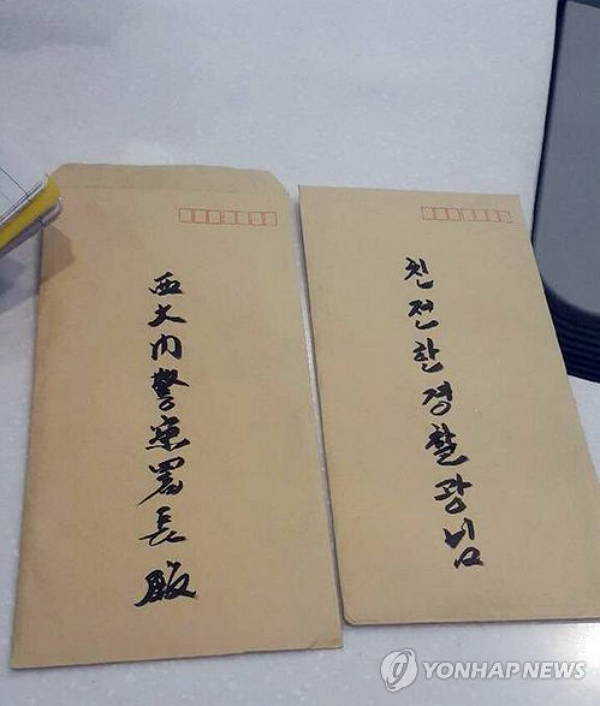 西大門警察署長殿
친전한경찰광님
YONHAPNEWS